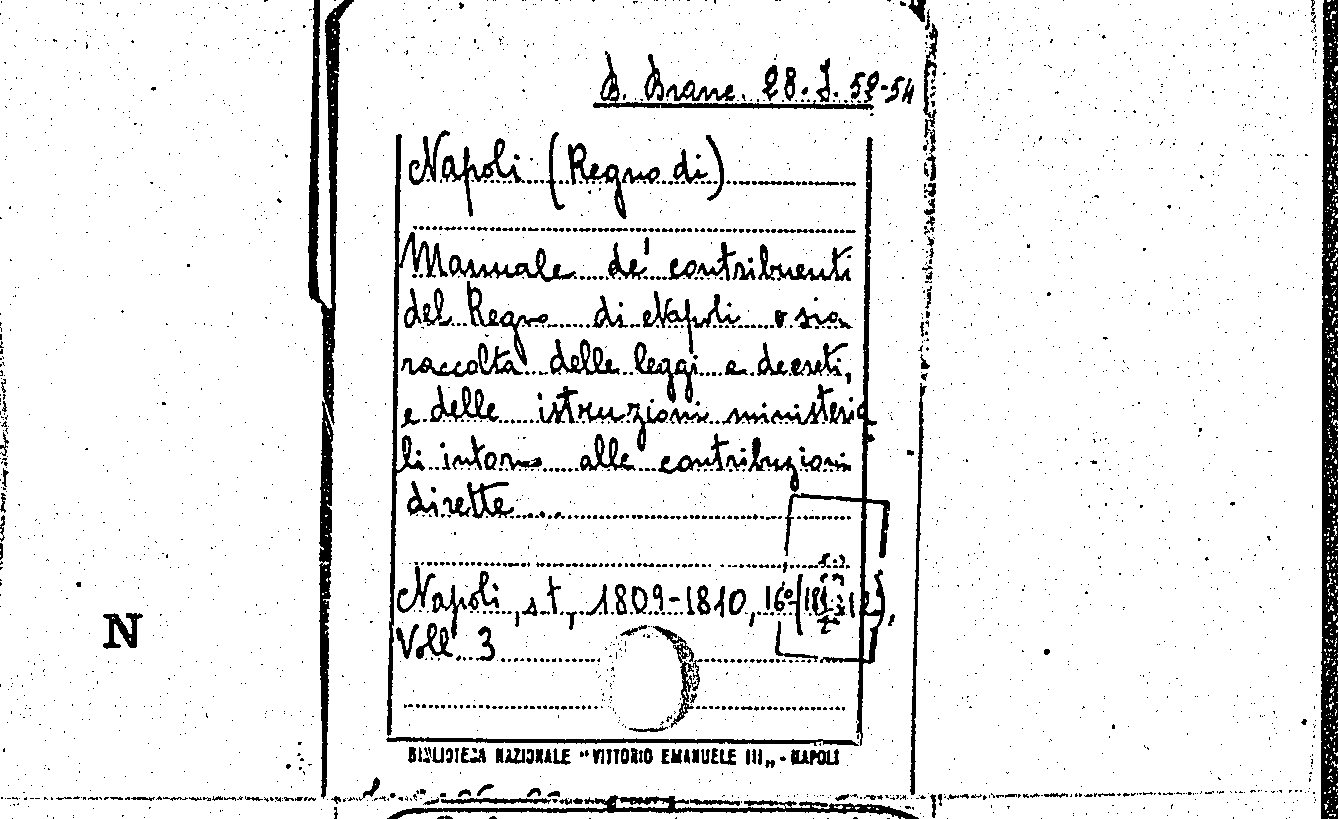 B. Branc. 28. J. 52-54
Napoli (Regno di)
Manuale de' contribuenti
del Regno di Napoli o sia
raccolta delle leggi e decreti,
e delle istruzioni ministeria
li intorno alle contribuzioni
dirette ...
Napoli, s t, 1809-1810, 16°
Voll. 3
N
BIBLIOTECA NAZIONALE "VITTORIO EMANUELE III„ - NAPOLI